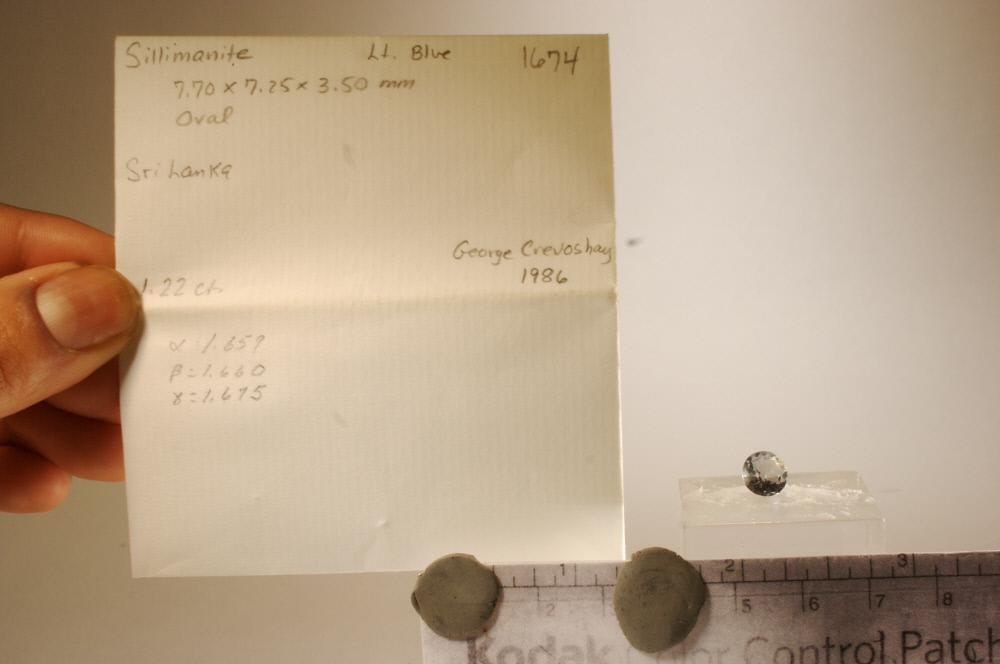 Sillimanite Lt. Blue 1674
7.70 x 7.25 x 3.50 mm
Oval
Sri Lanka
George Crevoshay
1986
1.22 ct.
α = 1.659
β = 1.660
γ = 1.675
1 2 3
2 5 6 7 8
Kodak Color Control Patch